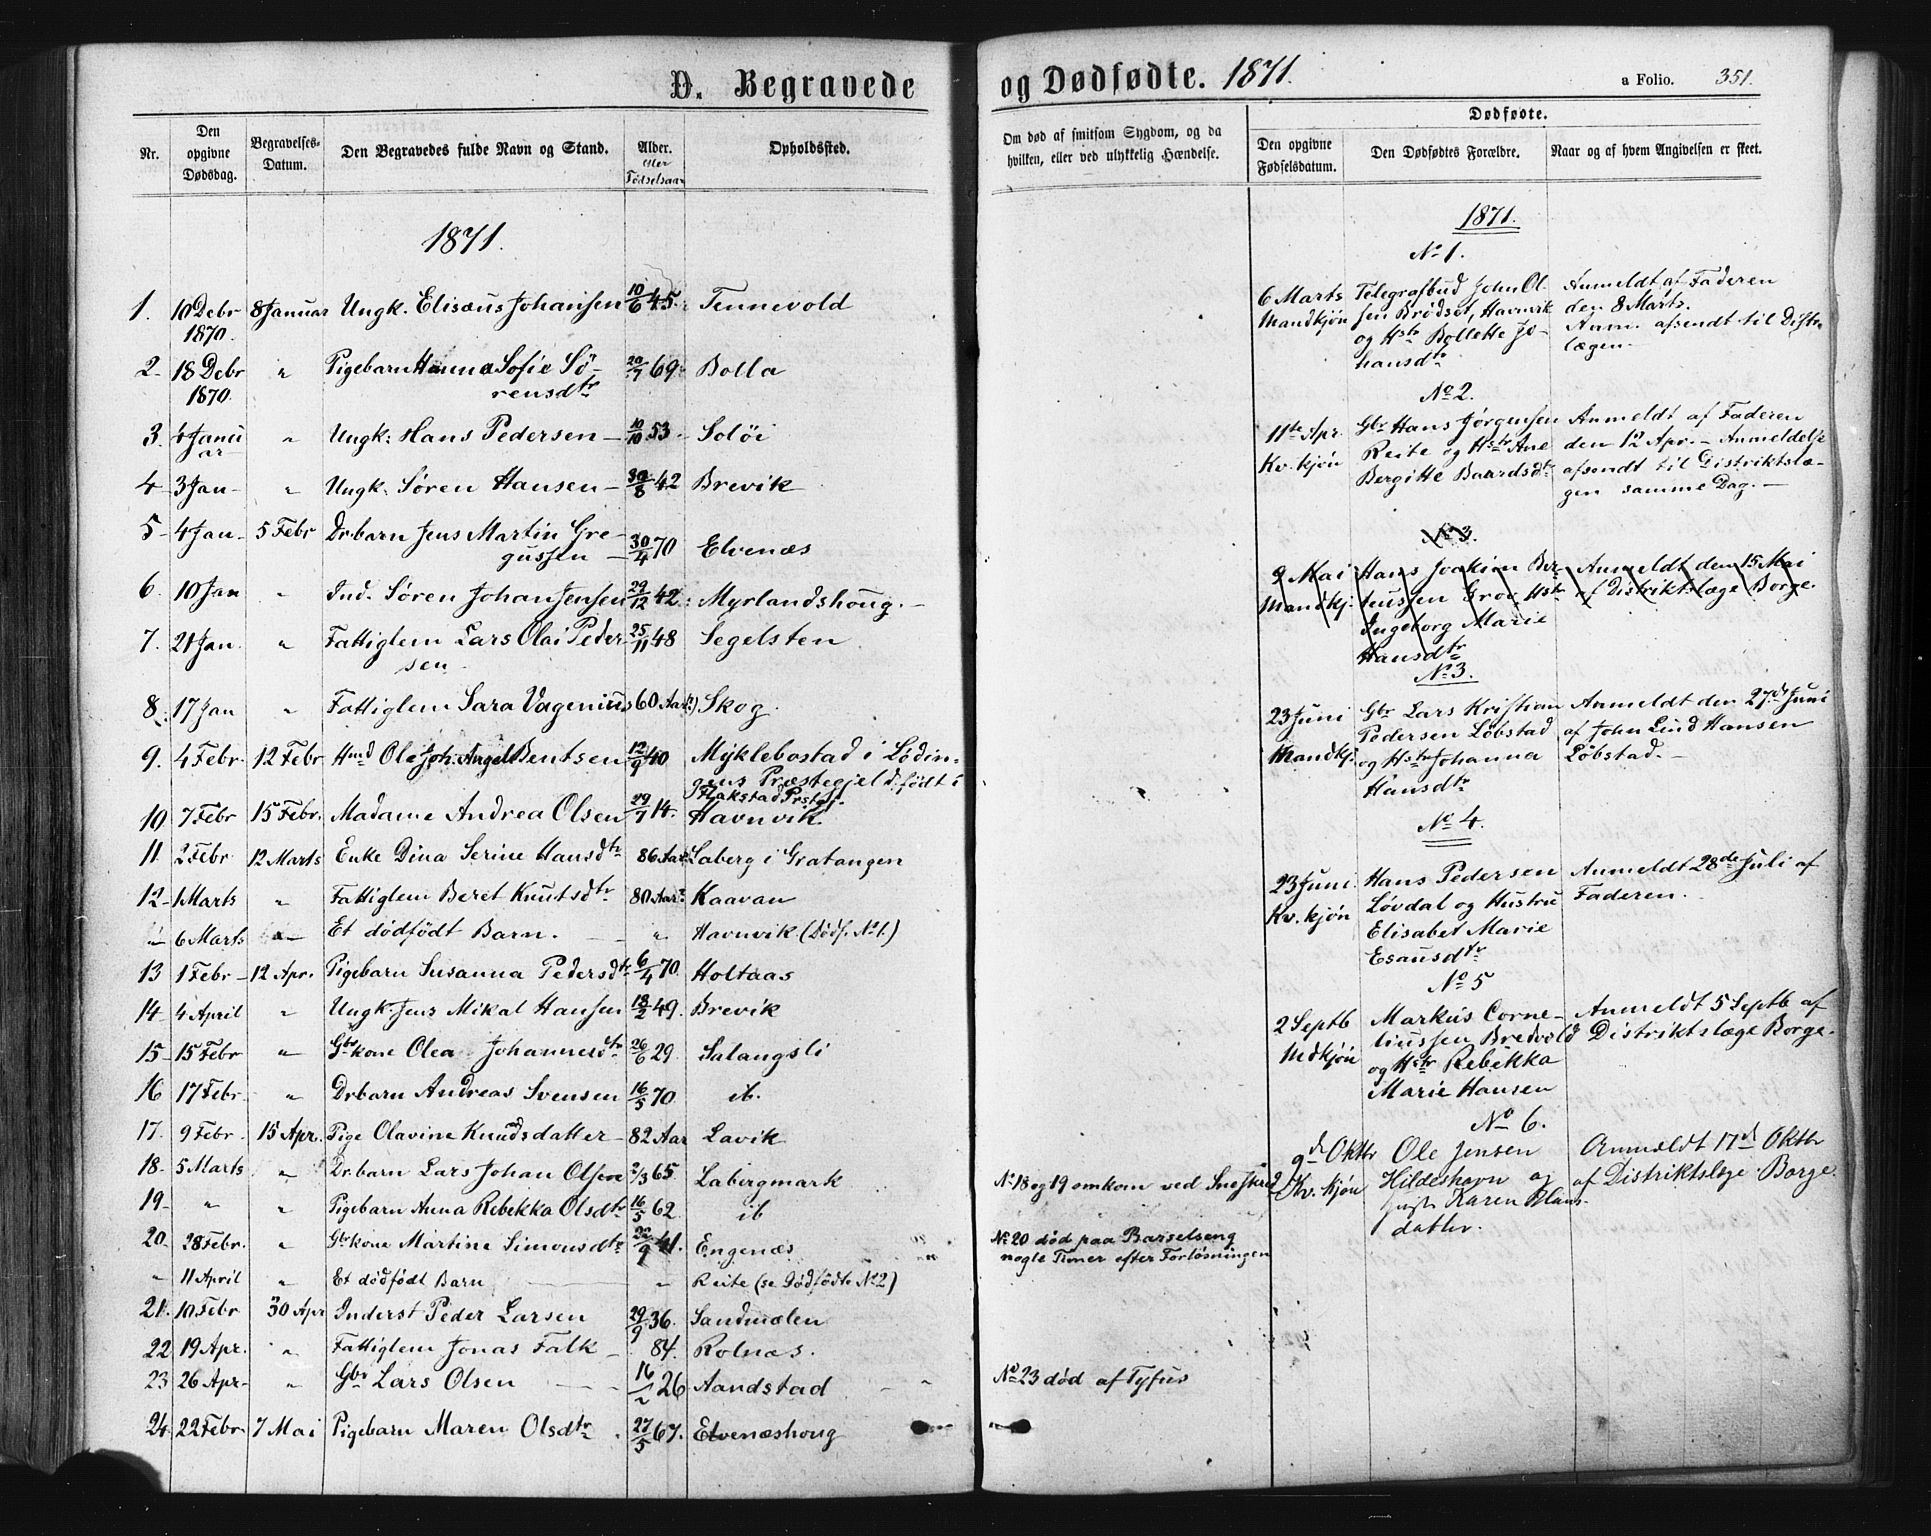 D. Begravede og Dødfødte. 1871. a Folio. 351.
Nr. | Den opgivne Dødsdag. | Begravelses-Datum. | Den Begravedes fulde Navn og Stand. | Alder. eller Fødselsaar | Opholdssted.
1871.
1. 10 Debr 1870. 8 Januar Ungk. Elisæus Johansen 10/6 45. Tennevold
2. 18 Debr 1870. " Pigebarn Hanna Sofie Sö-
rensdtr 20/7 69. Bolla
3. 6 Janu
ar " Ungk: Hans Pedersen 10/10 53. Soløi
4 3 Jan " Ungk: Søren Hansen 30/8 42 Brevik
5 4 Jan 5 Febr Drbarn Jens Martin Gre-
gussen 30/4 70 Elvenæs
6. 10 Jan " Ind. Søren Johan Jensen 29/12 42. Myrlandshoug.
7. 21 Jan. " Fattiglem Lars Olai Peder
sen 25/11 48 Segelsten
8. 17 Jan " Fattiglem Sara Vagenius 60 Aar Skog.
9. 4 Febr. 12 Febr Hmd Ole Joh. Angel Bentsen 12/9 40 Myklebostad i Lødin-
gens Præstegjeld født i
Flakstad Prstgj.
10 7 Febr 15 Febr. Madame Andrea Olsen 29/7 14. Havnvik.
11. 2 Febr 12 Marts Enke Dina Serine Hansdtr 86 Aar Laberg i Gratangen
12 1 Marts " Fattiglem Beret Knutsdtr 80 Aar Kaavan
" 6 Marts " Et dødfødt Barn. " Havnvik (Dødf. No 1.)
13 1 Febr 12 Apr. Pigebarn Susanna Pedersdtr 6/4 70. Holtaas
14 4 April " Ungk. Jens Mikal Hansen 18/2 49. Brevik
15 15 Febr " Gbrkone Olea Johannesdtr 26/6 29. Salangsli
16 17 Febr. " Drbarn Andreas Svensen 16/5 70 ib.
17. 9 Febr. 15 Apr. Pige Olavine Knudsdatter 82 Aar Lavik
18. 5 Marts " Drbarn Lars Johan Olsen 2/3 65 Labergmark
19. " " Pigebarn Anna Rebekka Olsdtr 16/5 62. ib
20. 28 Febr. " Gbrkone Martine Simonsdtr 22/9 41. Engenæs
" 11 April " Et dödfödt Barn " Reite (se Dödfödte No 2)
21. 10 Febr 30 Apr Inderst Peder Larsen 29/9 36. Sandmælen
22 19 Apr. " Fattiglem Jonas Falk 84. Rolnæs.
23 26 Apr. " Gbr Lars Olsen 16/2 26 Aandstad
24 22 Febr. 7 Mai Pigebarn Maren Olsdtr 27/5 67. Elvenæshoug
Om død af smitsom Sygdom, og da
hvilken, eller ved ulykkelig Hændelse.
No 18 og 19 omkom ved Sneskred
No 20 død paa Barselseng
nogle Timer efter Forløsningen
No 23 død af Tyfus
Dødfødte.
Den opgivne Fødselsdatum. | Den Dødfødtes Forældre. | Naar og af hvem Angivelsen er skeet.
1871.
No 1.
6 Marts Telegrafbud John Ol Anmeldt af Faderen
Mandkjøn sen Brødset, Havnvik den 8 Marts.
og Hstr Bollette Jo- Anm. afsendt til Distr.
hansdtr lægen.
No 2.
11te Apr. Gbr Hans Jørgensen Anmeldt af Faderen
Kv. kjøn Reite og Hstr Ane den 12 Apr. - Anmeldelse
Bergitte Baardsdtr afsendt til Distriktslæ-
gen samme Dag.
No 3.
9 Mai Hans Joakim Ber Anmeldt den 15 Mai
Mandkj. teussen Grov Hstr af Distriktslæge Borge.
Ingeborg Marie
Hansdtr
No 3.
23 Juni Gbr Lars Kristian Anmeldt den 27de Juni
Mandkj. Pedersen Løbstad af John Lind Hansen
og Hstr Johanna Løbstad.
Hansdtr
No 4.
23 Juni. Hans Pedersen Anmeldt 28de Juli af
Kv. kjøn Løvdal og Hustru Faderen.
Elisabet Marie
Esausdtr
No 5
2 Septb Markus Corne- Anmeldt 5 Septb af
Mdkjøn liussen Bredvold Distriktslæge Borge.
og Hstr Rebekka
Marie Hansen
No 6.
9d Oktbr Ole Jensen Anmeldt 17d Oktbr
Kv. kjøn Hildeshavn og af Distriktslæge Borge
Karen
datter.